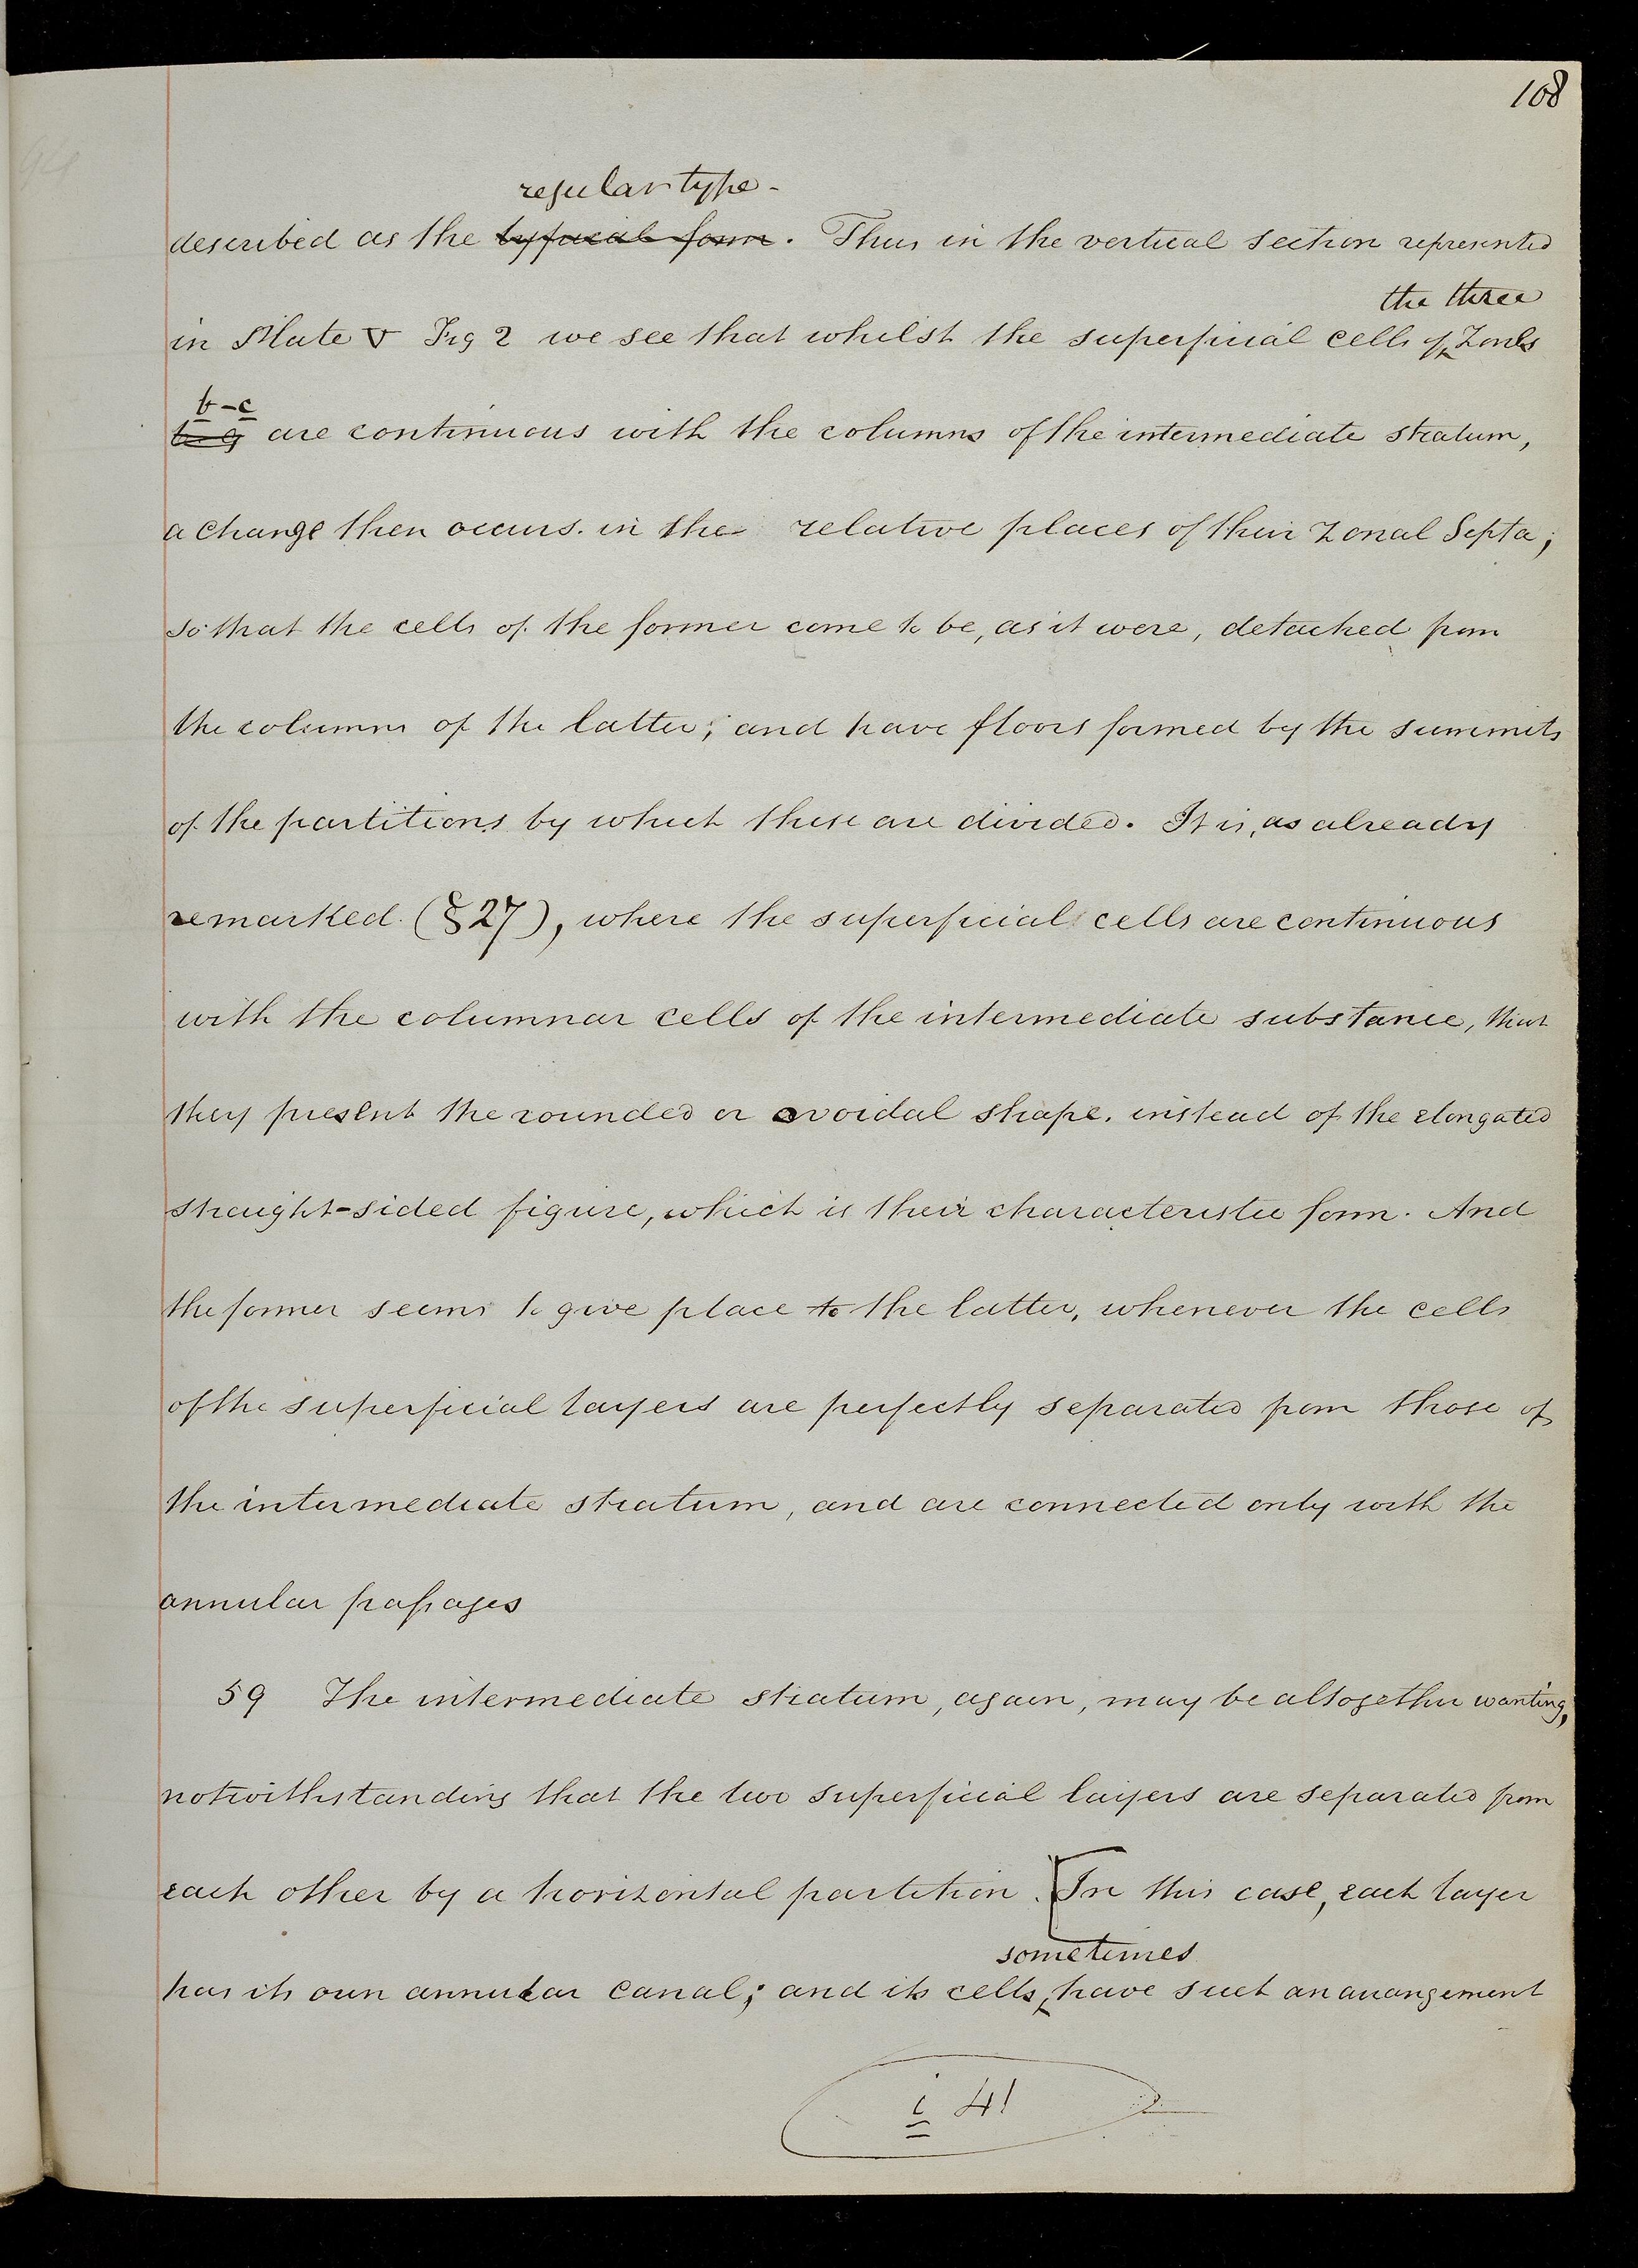 108
regular type.
described as the typical form. Thus in the vertical section represented
the three
in Plate V Fig 2 we see that whilst the superficial cells of Zones
b-c
are continuous with the columns of the intermediate stratum,
a change then occurs in the relative places of their Zonal Septa;
so that the cells of the former come to be, as it were, detached from
the columns of the latter; and have floors formed by the summits
of the partitions by which these are divided. It is, as already
remarked (§27), where the superficial cells are continuous
with the columnar cells of the intermediate substance, that
they present the rounded or ovoidal shape, instead of the elongated
straight-sided figure, which is their characteristic form. And
the former seems to give place to the latter, whenever the cells
of the superficial layers are perfectly separated from those of
the intermediate stratum, and are connected only with the
annular passages
59 The intermediate stratum, again, may be altogether wanting,
notwithstanding that the two superficial layers are separated from
each other by a horizontal partition. [In this case, each layer
sometimes
has its own annular canal; and its cells have such an arrangement
i 41